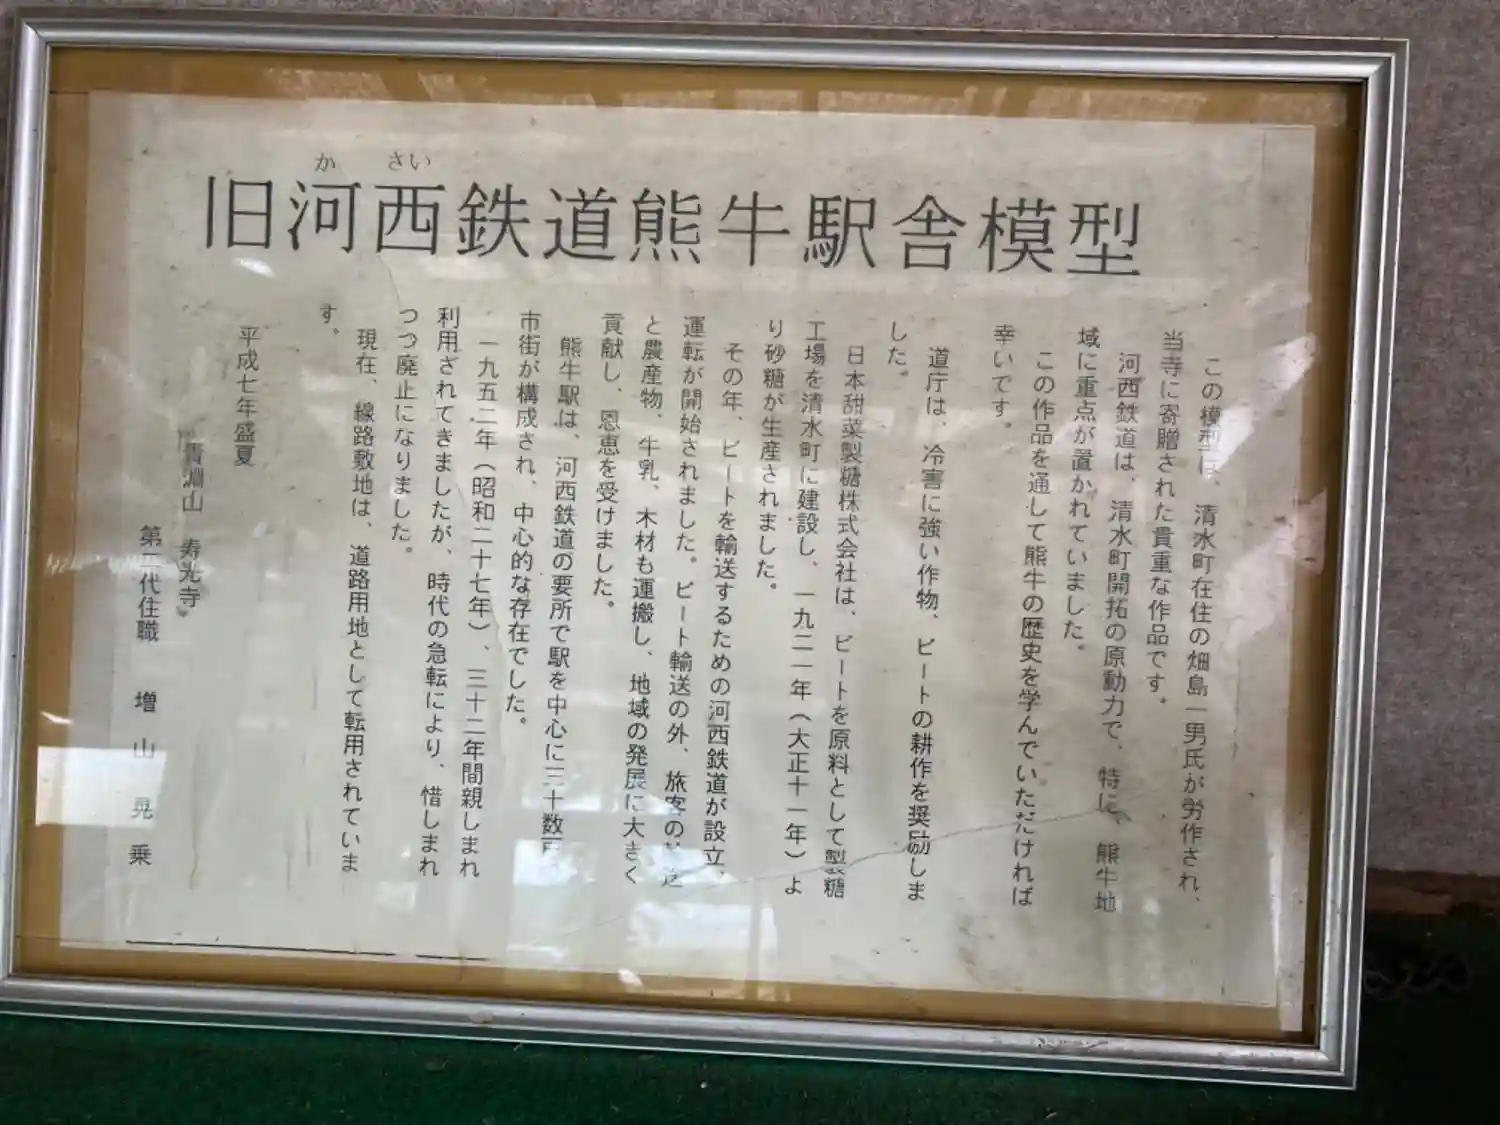 か さい
旧河西鉄道熊牛駅舎模型
この模型は、清水町在住の畑島一男氏が労作され、
当寺に寄贈された貴重な作品です。
河西鉄道は、清水町開拓の原動力で、特に、熊牛地
域に重点が置かれていました。
この作品を通して熊牛の歴史を学んでいただければ
幸いです。
道庁は、冷害に強い作物、ビートの耕作を奨励しま
した。
日本甜菜製糖株式会社は、ビートを原料として製糖
工場を清水町に建設し、一九二一年(大正十一年)よ
り砂糖が生産されました。
その年、ビートを輸送するための河西鉄道が設立、
運転が開始されました。ビート輸送の外、旅客の
と農産物、牛乳、木材も運搬し、地域の発展に大きく
貢献し、恩恵を受けました。
熊牛駅は、河西鉄道の要所で駅を中心に三十数戸
市街が構成され、中心的な存在でした。
一九五二年(昭和二十七年)、三十二年間親しまれ
利用されてきましたが、時代の急転により、惜しまれ
つつ廃止になりました。
現在、線路敷地は、道路用地として転用されていま
す。
平成七年盛夏
青淵山 寿光寺
第二代住職 増山晃乗